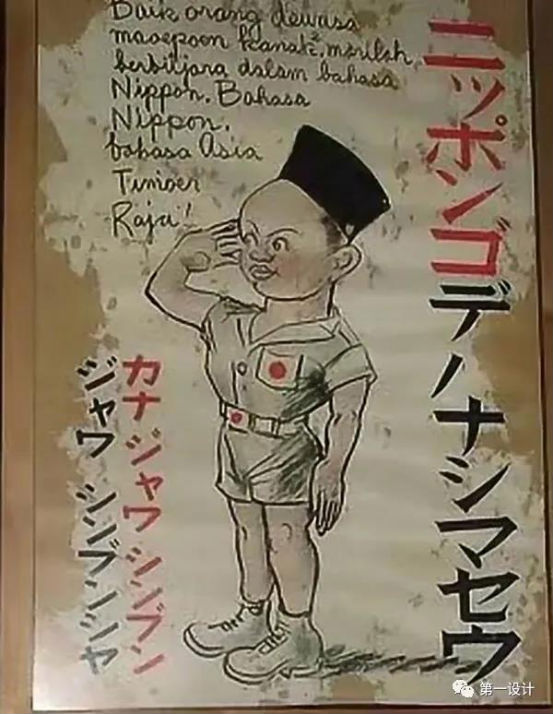 Baik orang dewasa
maoepoen kanak², marilah
berbitjara dalam bahasa
Nippon. Bahasa
Nippon,
bahasa Asia
Timoer
Raja!
ニッポンゴデハナシマセウ
カナ ジャワ シンブン
ジャワ シンブンシヤ
第一设计